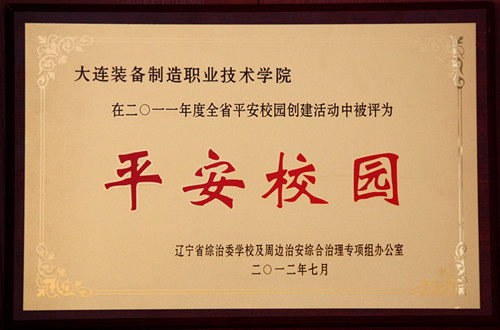 大连装备制造职业技术学院
在二〇一一年度全省平安校园创建活动中被评为
平安校园
辽宁省综治委学校及周边治安综合治理专项组办公室
二〇一二年七月